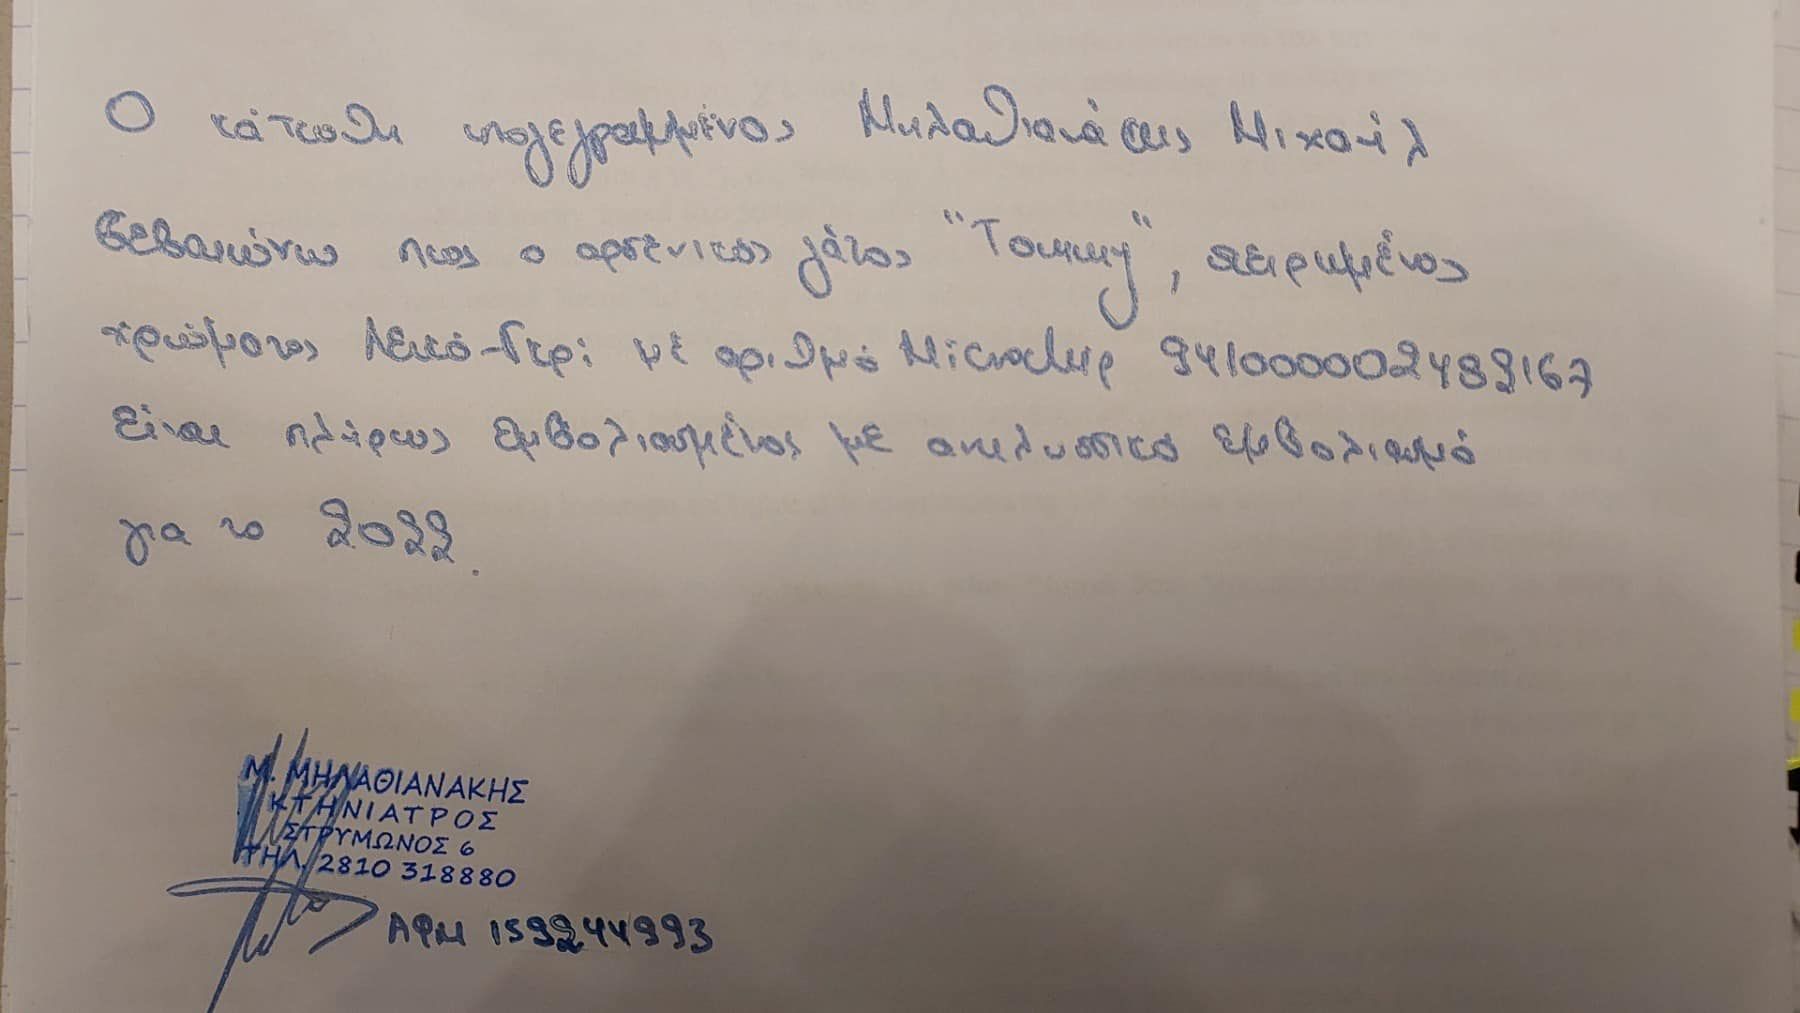 Ο κάτωθι υπογεγραμμένος Μηλαθιανάκης Μιχαήλ
βεβαιώνω πως ο αρσενικός γάτος "Tommy", στειρωμένος
χρώματος Λευκό-Γκρί με αριθμό Microchip 941000002489167
Είναι πλήρως εμβολιασμένος με αντιλυσσικό εμβολιασμό
για το 2022.
Μ. ΜΗΛΑΘΙΑΝΑΚΗΣ
ΚΤΗΝΙΑΤΡΟΣ
ΣΤΡΥΜΩΝΟΣ 6
ΤΗΛ. 2810 318880
ΑΦΜ 159244993